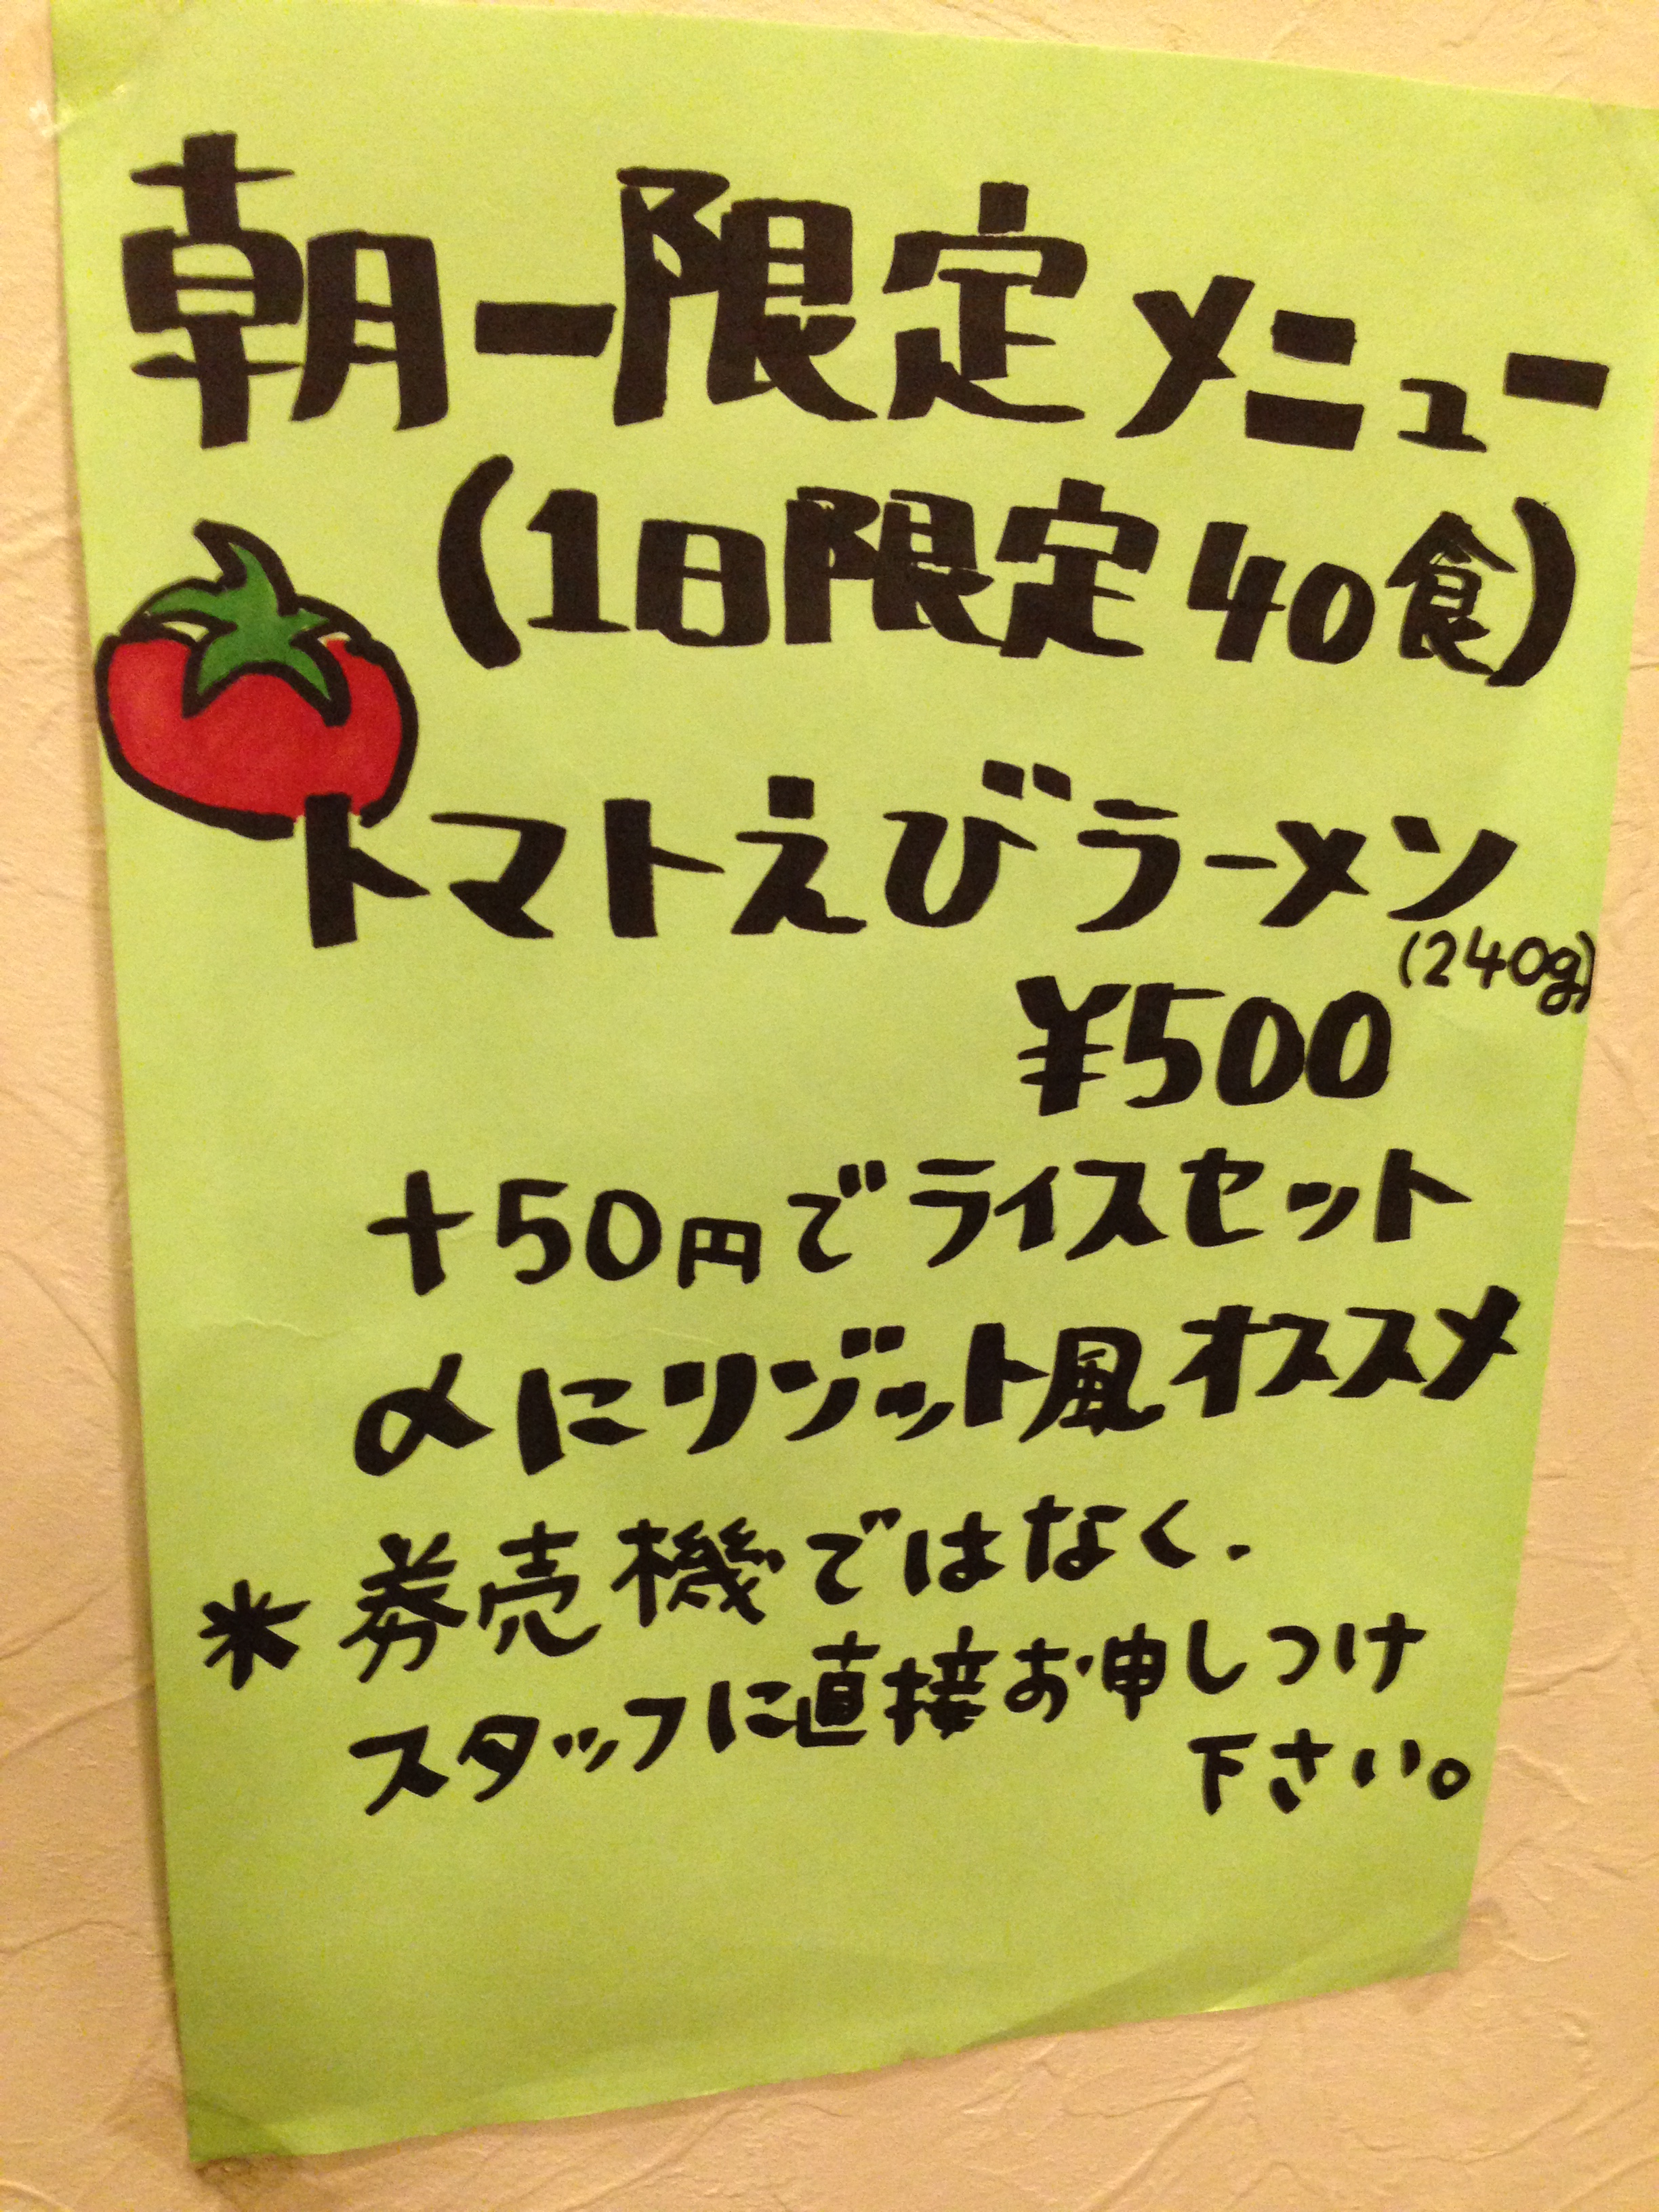 朝一限定メニュー
(1日限定40食)
トマトえびラーメン
(240g)
¥500
+50円でライスセット
〆にリゾット風オススメ
* 券売機ではなく、
スタッフに直接お申しつけ
下さい。